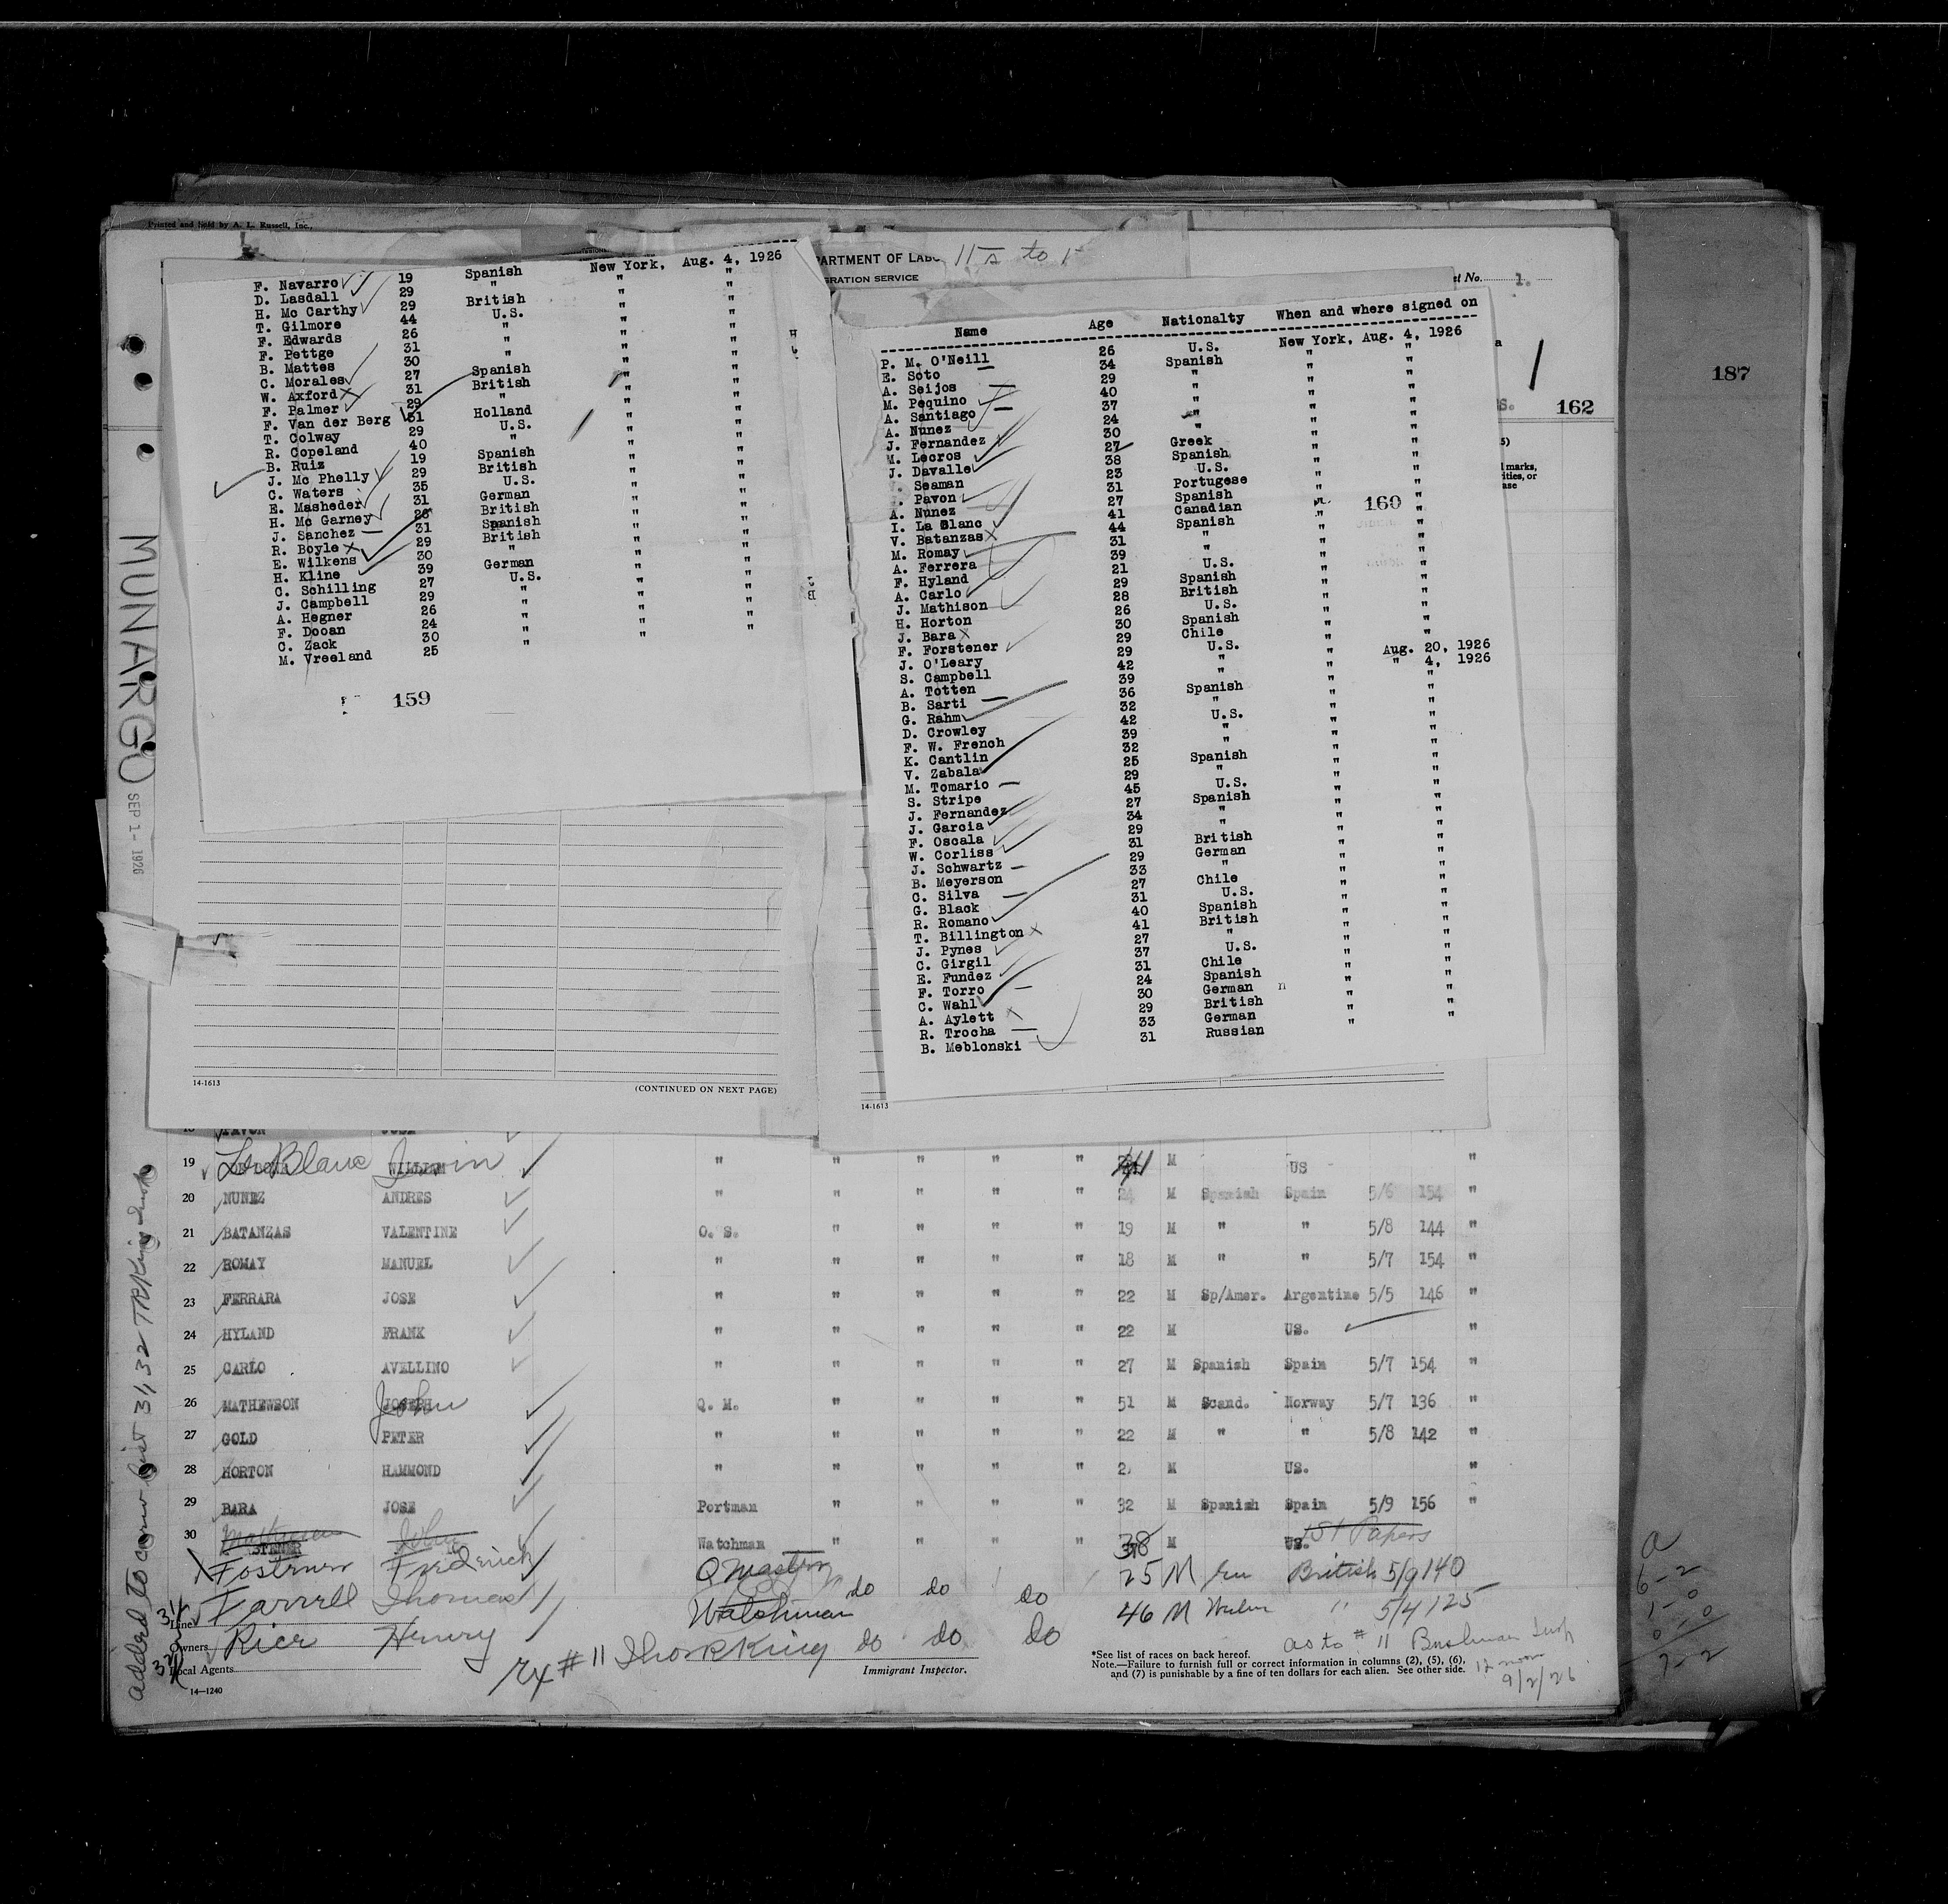 Printed and sold by A. L. Russell, Inc.,
F. Navarro 19 Spanish New York, Aug. 4, 1926
D. Lasdall 29 " " "
H. Mc Carthy 29 British " "
T. Gilmore 44 U.S. " "
F. Edwards 26 " " "
F. Pettge 31 " " "
B. Mattes 30 " " "
C. Morales 27 Spanish " "
W. Axford 31 British " "
F. Palmer 29 " " "
F. Van der Berg 31 Holland " "
T. Colway 29 U.S. " "
R. Copeland 40 " " "
B. Ruiz 19 Spanish " "
J. Mc Phelly 29 British " "
C. Waters 35 U.S. " "
E. Masheder 31 German " "
H. Mc Garney 26 British " "
J. Sanchez 31 Spanish " "
R. Boyle 29 British " "
E. Wilkens 30 " " "
H. Kline 39 German " "
C. Schilling 27 U.S. " "
J. Campbell 29 " " "
A. Hegner 26 " " "
F. Dooan 24 " " "
C. Zack 30 " " "
M. Vreeland 25 "
159
14-1613
(CONTINUED ON NEXT PAGE)
MUNARGO
SEP 1- 1926
11 to 1
1.
162
187
Name Age Nationalty When and where signed on
P. M. O'Neill 26 U.S. New York, Aug. 4, 1926
E. Soto 34 Spanish " "
A. Seijos 29 " " "
M. Pequino 40 " " "
A. Santiago 37 " " "
A. Nunez 24 " " "
J. Fernandez 30 " " "
M. Lecros 27 Greek " "
J. Davalle 38 Spanish " "
Seaman 23 U.S. " "
Pavon 31 Portugese " "
A. Nunez 27 Spanish " "
I. La Blanc 41 Canadian " "
V. Batanzas 44 Spanish " "
M. Romay 31 " " "
A. Ferrera 39 " " "
F. Hyland 21 U.S. " "
A. Carlo 29 Spanish " "
J. Mathison 28 British " "
H. Horton 26 U.S. " "
J. Bara 30 Spanish " "
F. Forstener 29 Chile " "
J. O'Leary 29 U.S. " Aug. 20, 1926
S. Campbell 42 " " " 4, 1926
A. Totten 39 " " "
B. Sarti 36 Spanish " "
G. Rahm 32 " " "
D. Crowley 42 U.S. " "
F. W. French 39 " " "
K. Cantlin 32 " " "
V. Zabala 25 Spanish " "
M. Tomario 29 " " "
S. Stripe 45 U.S. " "
J. Fernandez 27 Spanish " "
J. Garcia 34 " " "
F. Oscala 29 " " "
W. Corliss 31 British " "
J. Schwartz 29 German " "
B. Meyerson 33 " " "
C. Silva 27 Chile " "
G. Black 31 U.S. " "
R. Romano 40 Spanish " "
T. Billington 41 British " "
J. Pynes 27 " " "
C. Girgil 37 U.S. " "
E. Fundez 31 Chile " "
F. Torro 24 Spanish " "
C. Wahl 30 German " "
A. Aylett 29 British " "
R. Trocha 33 German " "
B. Meblonski 31 Russian
160
14-1613
19 Le Blanc Irwin " " " " " 41 M US "
20 NUNEZ ANDRES " " " " 24 M Spanish Spain 5/6 154 "
21 BATANZAS VALENTINE O. S. " " " " 19 M " " 5/8 144 "
22 ROMAY MANUEL " " " " " 18 M " " 5/7 154 "
23 FERRARA JOSE " " " " " 22 M Sp/Amer. Argentine 5/5 146 "
24 HYLAND FRANK " " " " " 22 M US. "
25 CARLO AVELLINO " " " " " 27 M Spanish Spain 5/7 154 "
26 MATHEWSON JOSEPH John Q. M. " " " " 51 M Scand. Norway 5/7 136 "
27 GOLD PETER " " " " " 22 M " " 5/8 142 "
28 HORTON HAMMOND " " " " " 2 M US. "
29 BARA JOSE Portman " " " " 32 M Spanish Spain 5/9 156 "
30 STENER Watchman " " " " 38 M US. 1st Papers
Fostner Frederick Q Master 25 M British 5/9 140
31 Farrell Thomas Watchman do do do 46 M " 5/4 125
32 Rice Henry do do do
Line
Owners
Local Agents
14—1240
Immigrant Inspector.
*See list of races on back hereof.
Note.—Failure to furnish full or correct information in columns (2), (5), (6),
and (7) is punishable by a fine of ten dollars for each alien. See other side.
as to # 11 Bushman Insp
12 noon
9/2/26
6-2
1-0
7-2